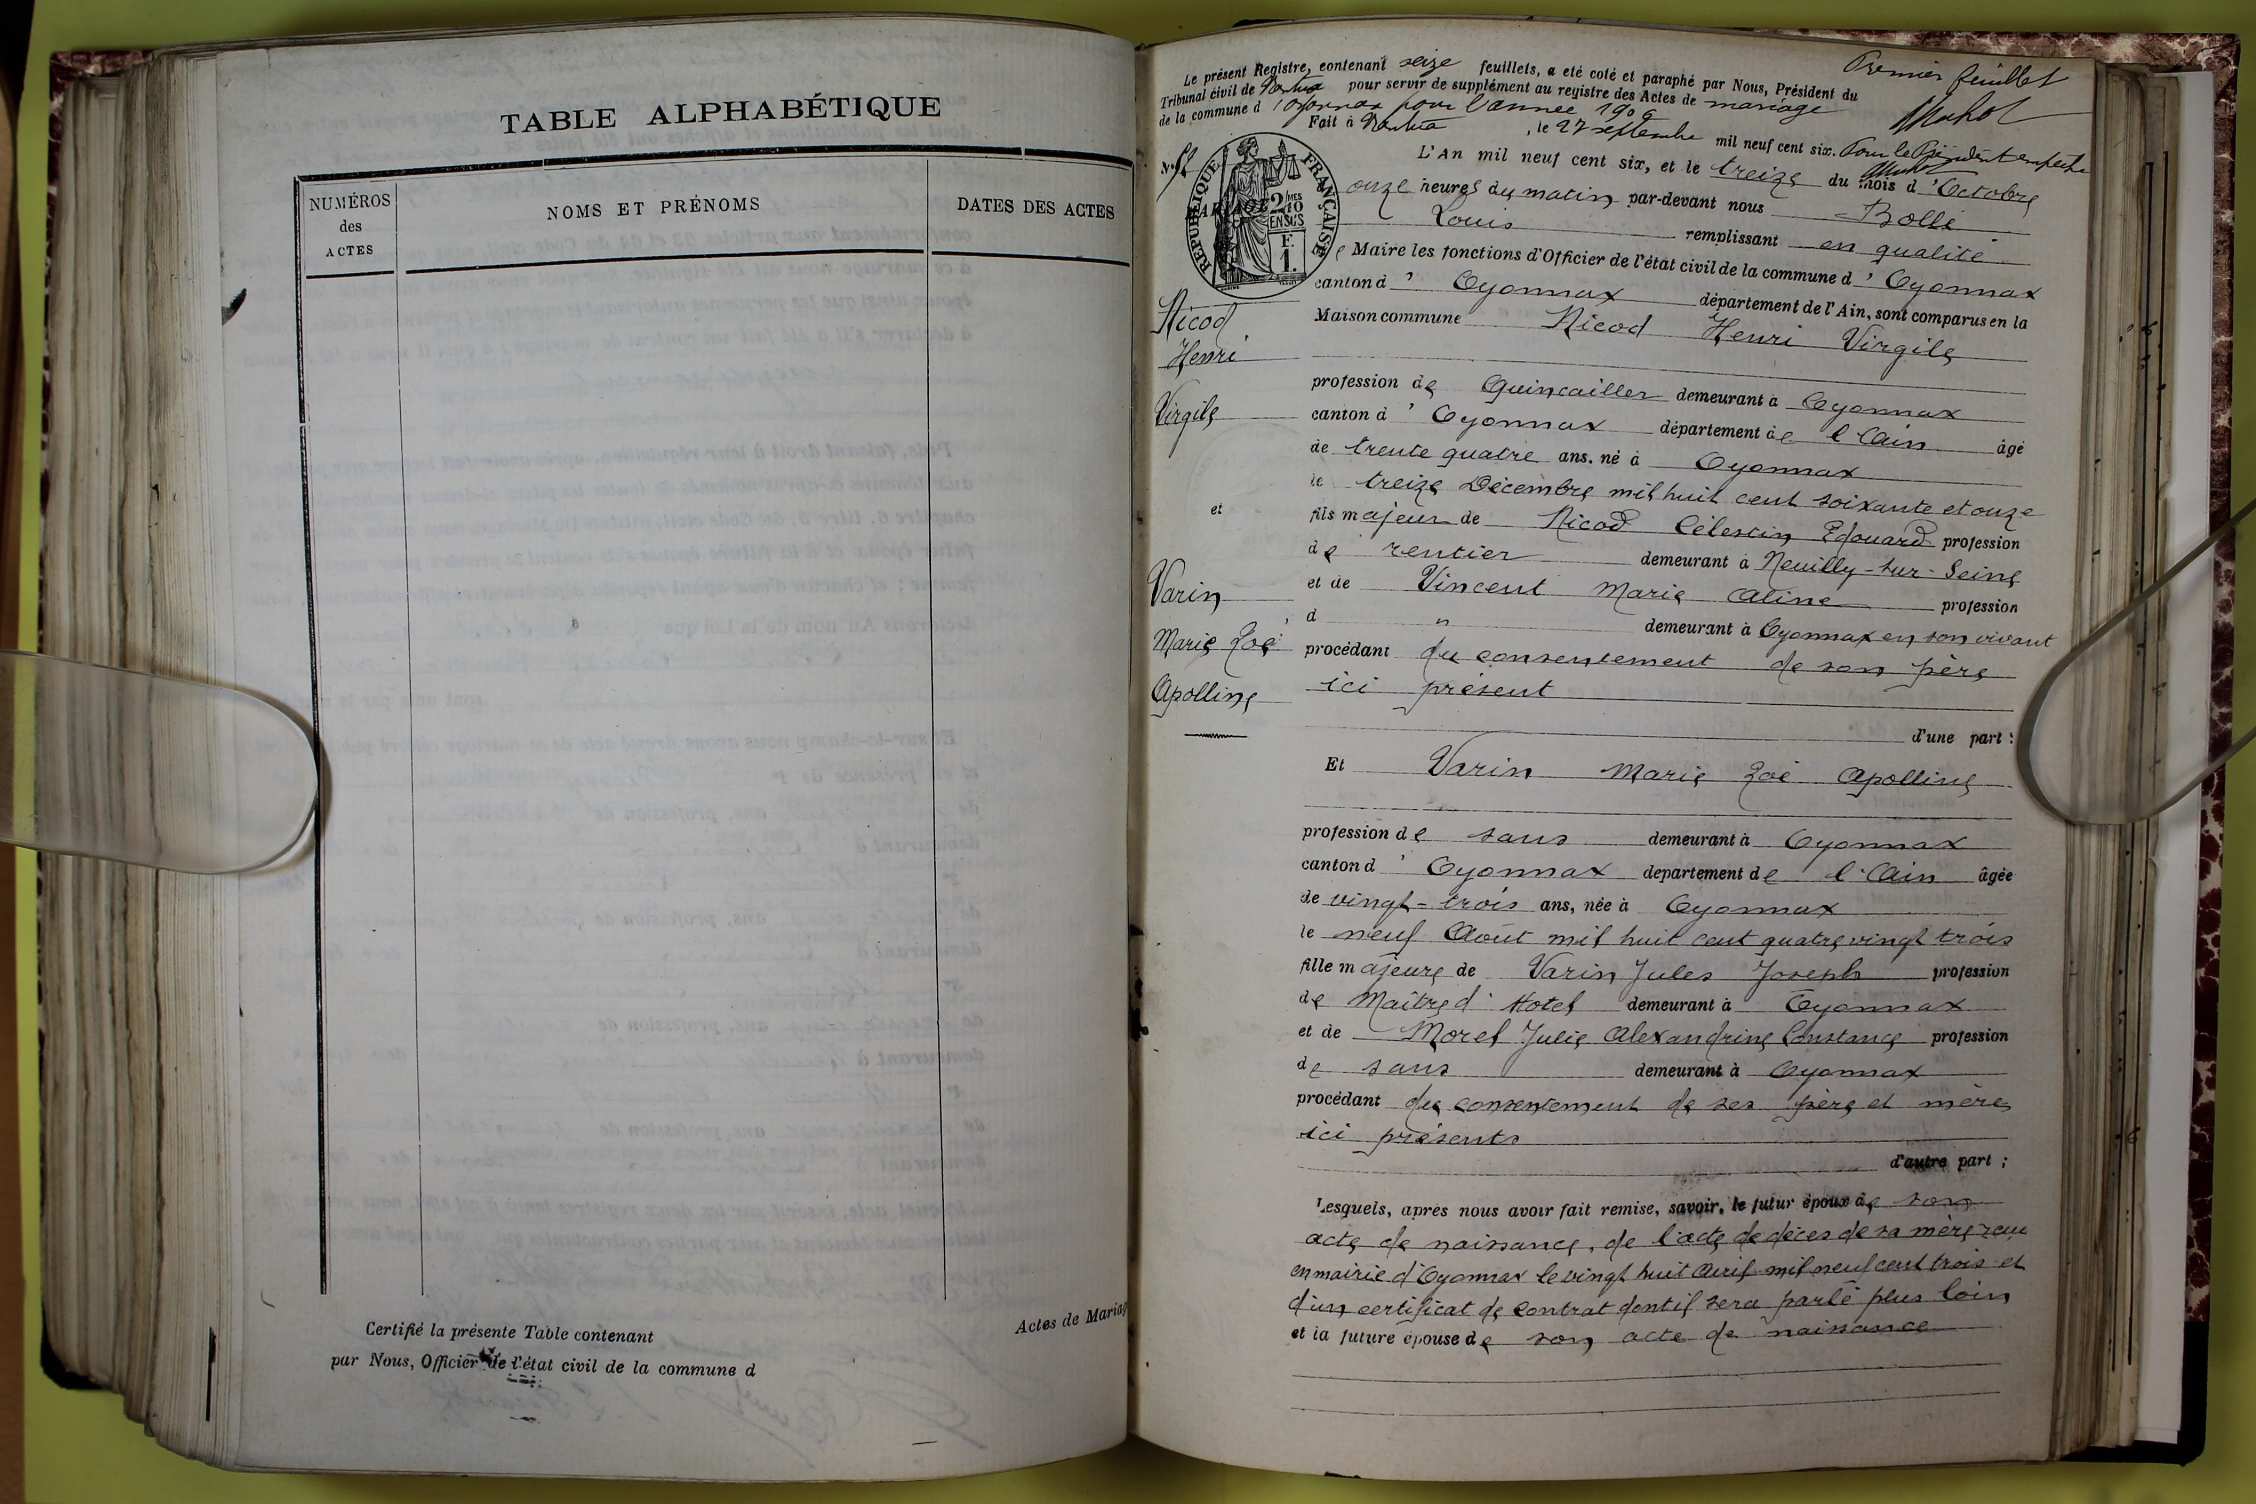 TABLE ALPHABÉTIQUE
NUMÉROS
des
ACTES
NOMS ET PRÉNOMS
DATES DES ACTES
Certifié la présente Table contenant
par Nous, Officier de l'état civil de la commune d
Actes de Mariag
Premier feuillet
Le présent Registre, contenant seize feuillets, a été coté et paraphé par Nous, Président du
Tribunal civil de Nantua pour servir de supplément au registre des Actes de mariage
de la commune d'Oyonnax pour l'année 1906
Fait à Nantua, le 27 septembre mil neuf cent six. Pour le Président empêché
N° 52
RÉPUBLIQUE FRANÇAISE
2/10MES
EN SUS
F.
1.
L'An mil neuf cent six, et le treize du mois d'Octobre
onze heures du matin par-devant nous Bollé
Louis remplissant en qualité
e Maire les fonctions d'Officier de l'état civil de la commune d'Oyonnax
canton d'Oyonnax département de l'Ain, sont comparus en la
Maison commune Nicod Henri Virgile
profession de Quincailler demeurant à Oyonnax
canton d'Oyonnax département de l'Ain âgé
de trente quatre ans, né à Oyonnax
le treize Décembre mil huit cent soixante et onze
fils majeur de Nicod Célestin Edouard profession
de rentier demeurant à Neuilly-sur-Seine
et de Vincent Marie Aline profession
d " demeurant à Oyonnax en son vivant
procédant du consentement de son père
ici présent
d'une part :
Et Varin Marie Zoé Apolline
profession de sans demeurant à Oyonnax
canton d'Oyonnax département de l'Ain âgée
de vingt-trois ans, née à Oyonnax
le neuf Août mil huit cent quatre vingt trois
fille majeure de Varin Jules Joseph profession
de Maître d'Hotel demeurant à Oyonnax
et de Morel Julie Alexandrine Constance profession
de sans demeurant à Oyonnax
procédant du consentement de ses père et mère
ici présents
d'autre part ;
Lesquels, après nous avoir fait remise, savoir, le futur époux de son
acte de naissance, de l'acte de décès de sa mère reçu
en mairie d'Oyonnax le vingt huit Avril mil neuf cent trois et
d'un certificat de contrat dont il sera parlé plus loin
et la future épouse de son acte de naissance
Nicod
Henri
Virgile
et
Varin
Marie Zoé
Apolline